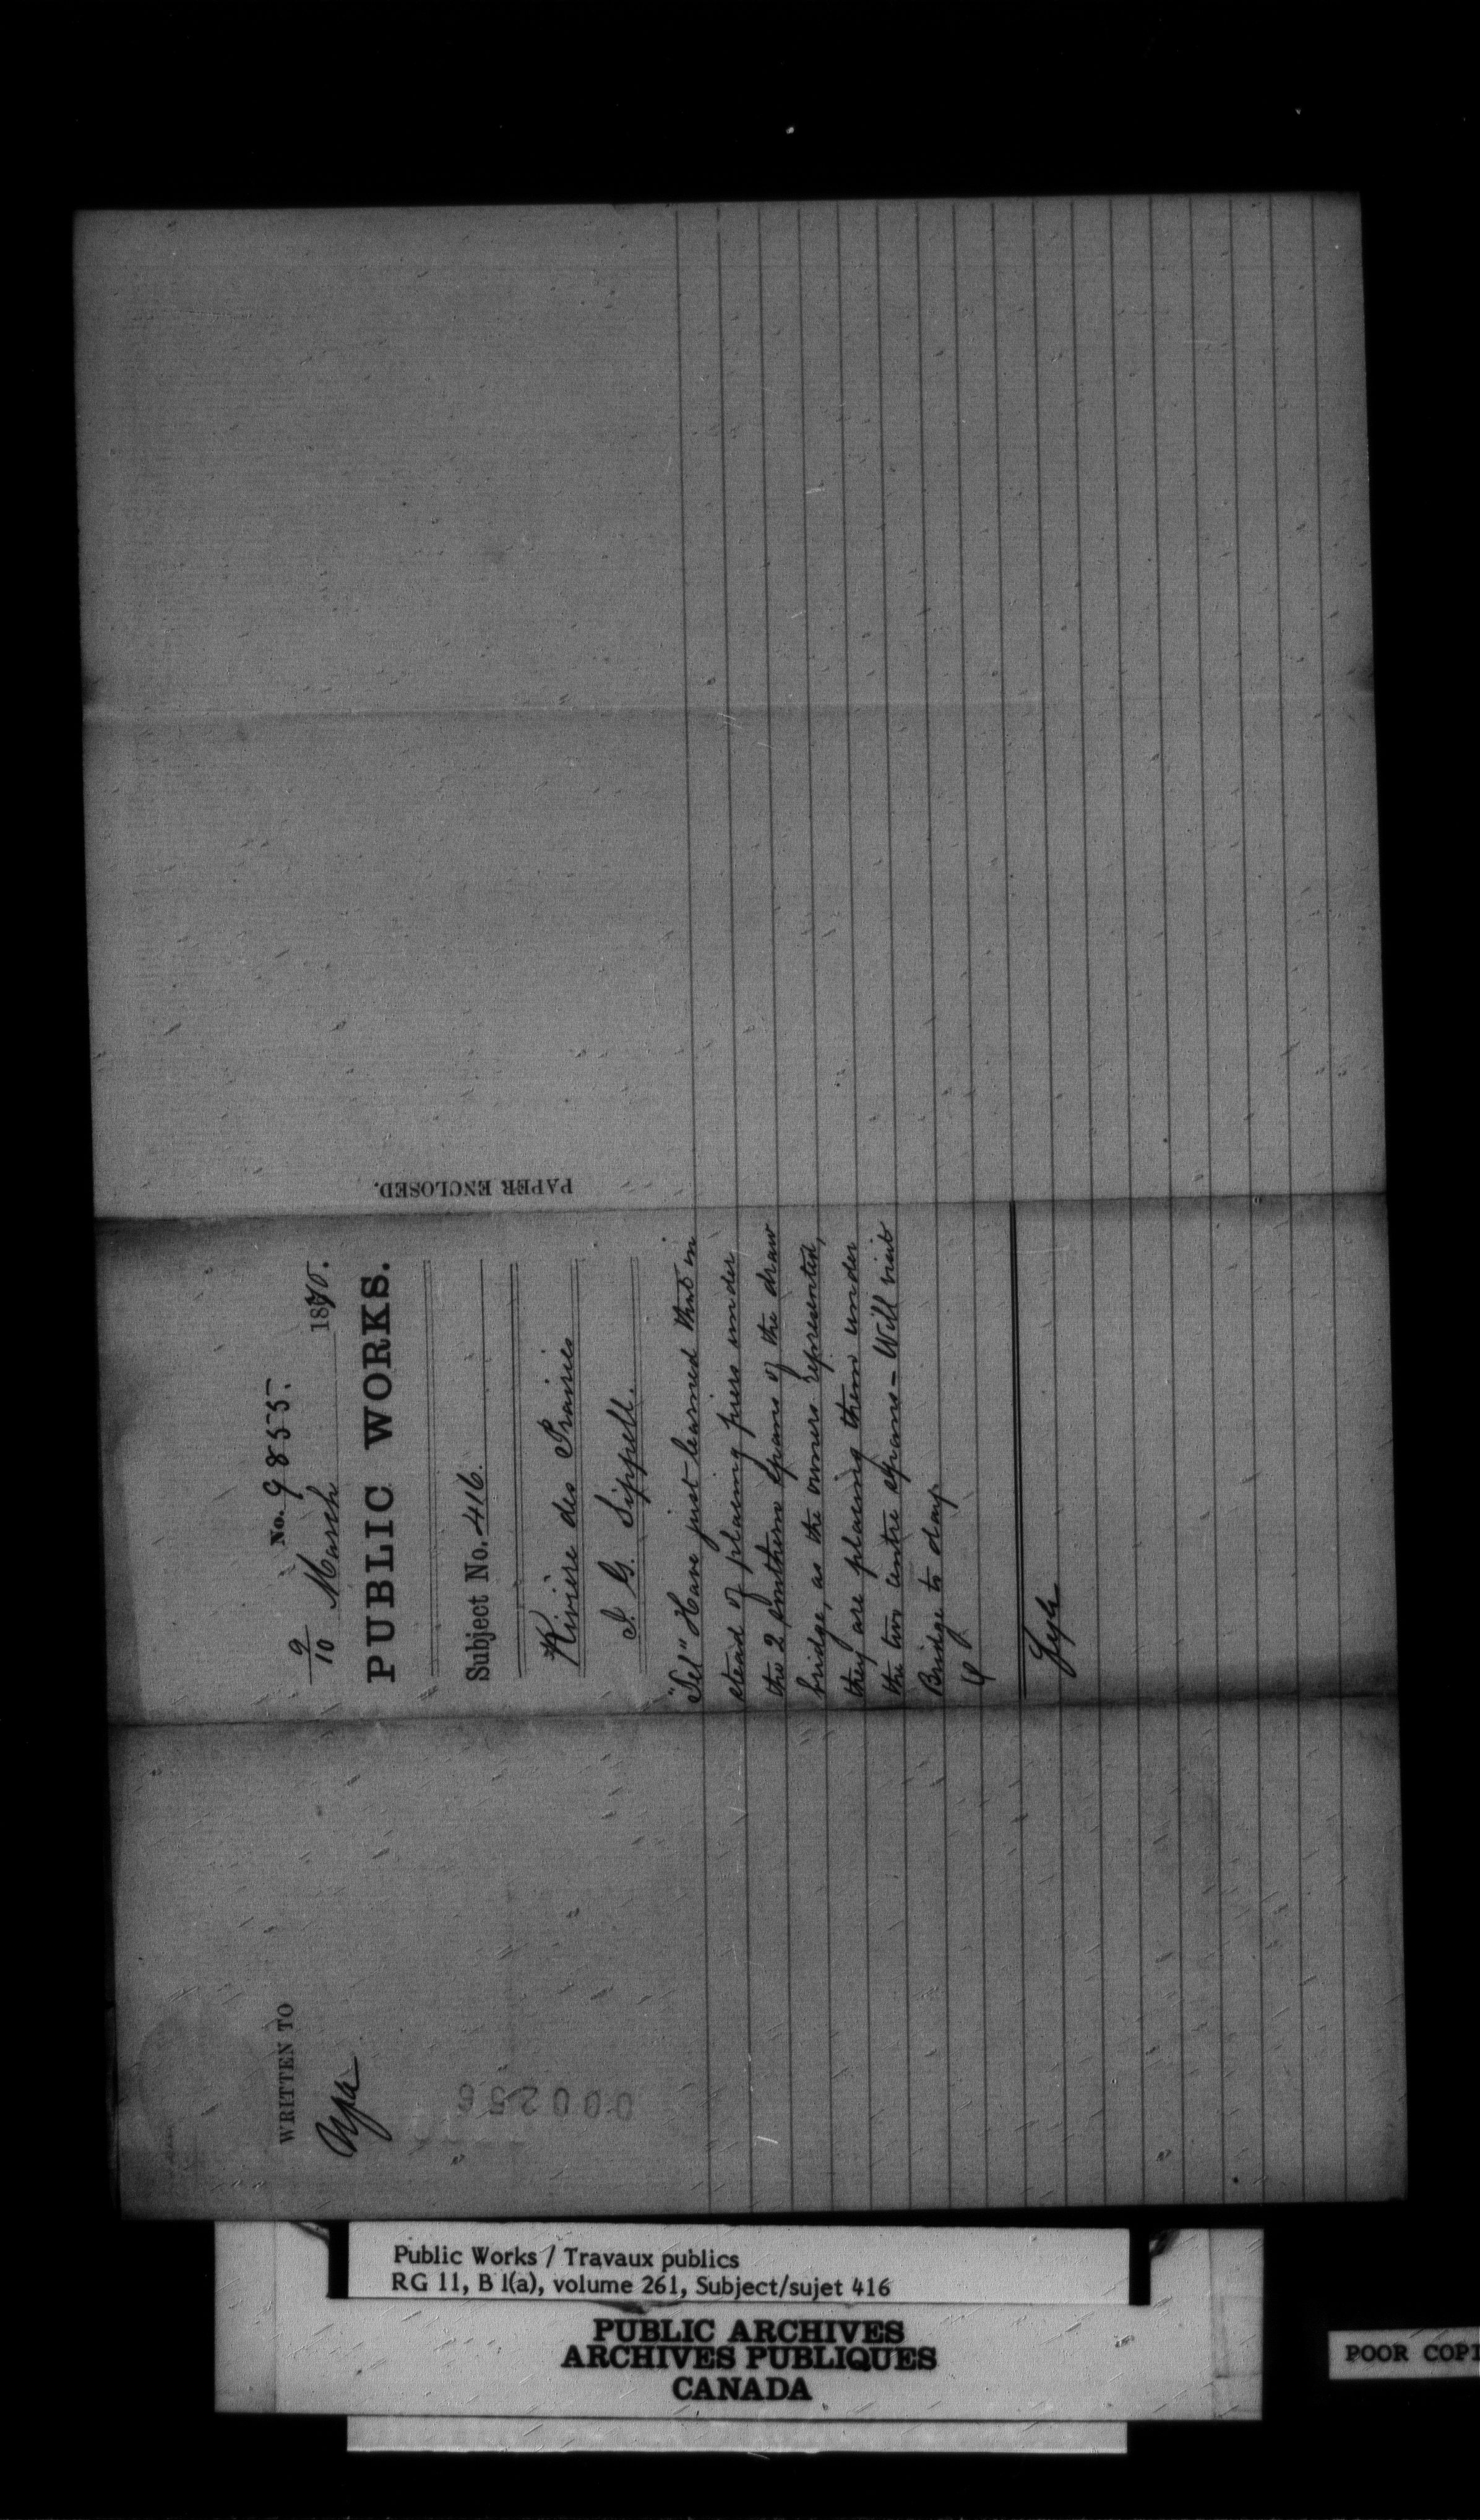 No. 9855.
9/10 March 1870.
PUBLIC WORKS.
Subject No. 416.
Rivière des Prairies
J. G. Sippell.
"Tel" Have just learned that in
stead of placing piers under
the 2 southern spans of the draw
bridge, as the owners represented,
they are placing them under
the two centre spans – Will visit
Bridge to day
PAPER ENCLOSED.
WRITTEN TO
000256
Public Works / Travaux publics
RG 11, B 1(a), volume 261, Subject/sujet 416
PUBLIC ARCHIVES
ARCHIVES PUBLIQUES
CANADA
POOR COPI